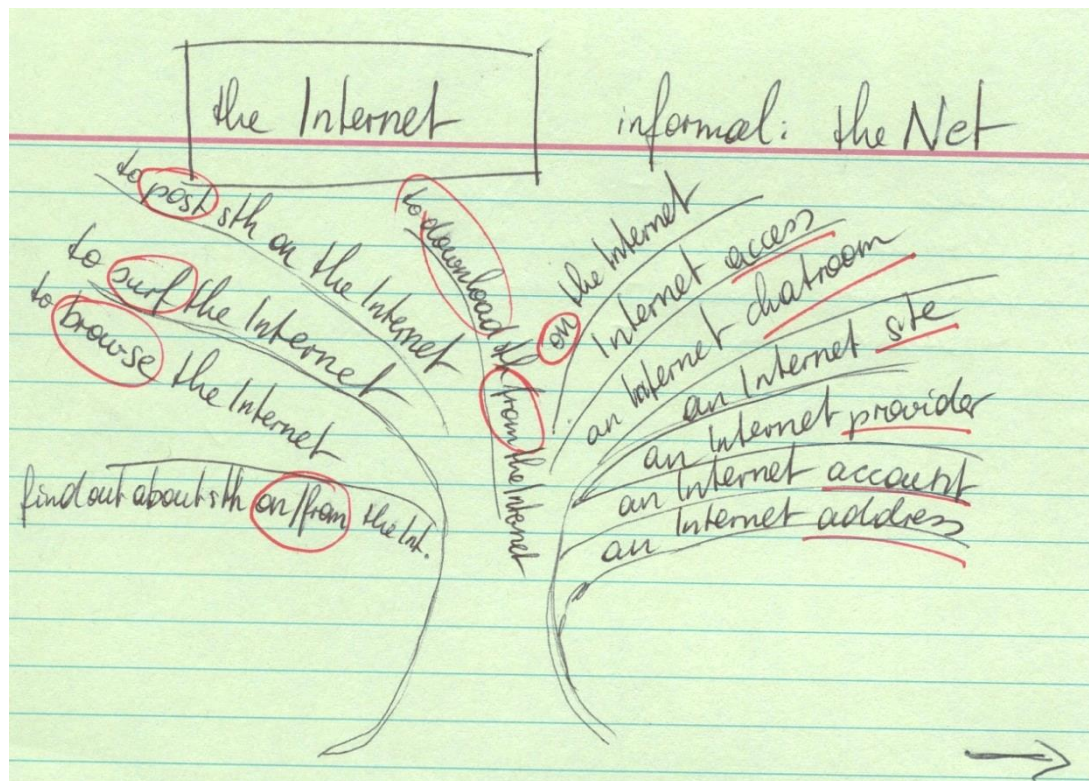 the Internet
informal: the Net
to post sth on the Internet
to surf the Internet
to browse the Internet
find out about sth on/from the Int.
to download sth from the Internet
on the Internet
Internet access
an Internet chatroom
an Internet site
an Internet provider
an Internet account
an Internet address